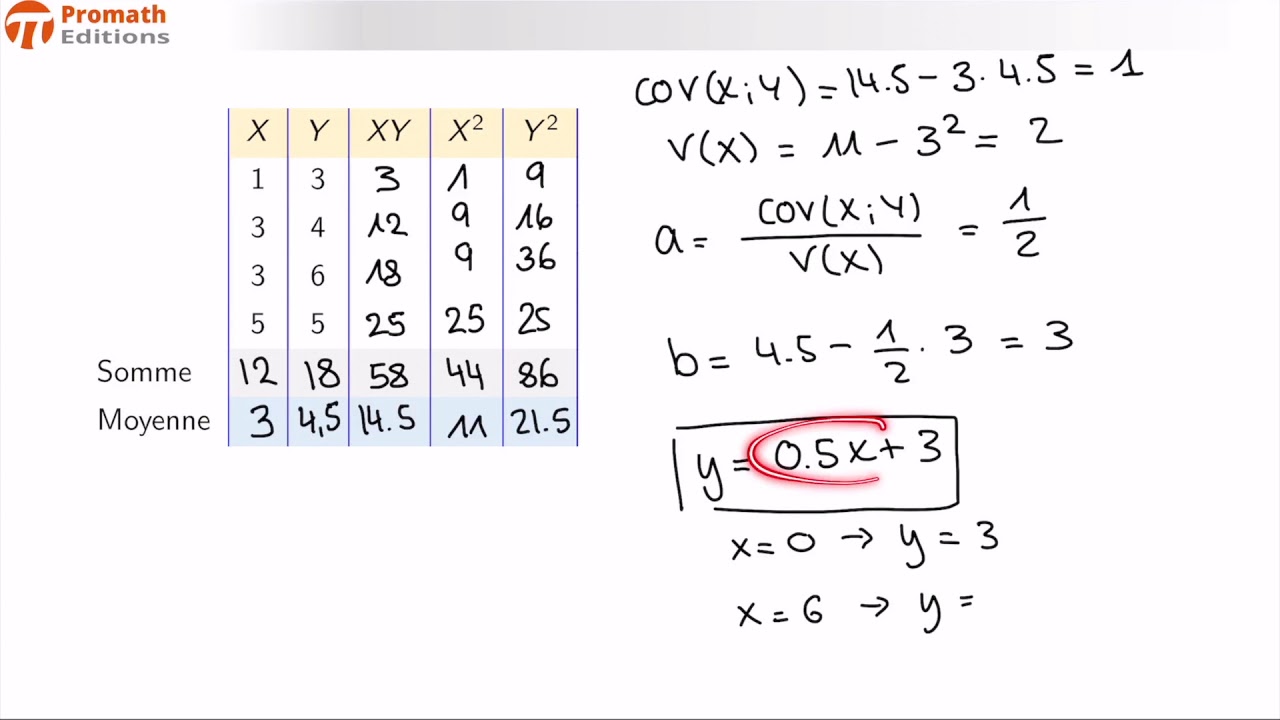 Promath
Editions
X Y XY X² Y²
1 3 3 1 9
3 4 12 9 16
3 6 18 9 36
5 5 25 25 25
Somme 12 18 58 44 86
Moyenne 3 4,5 14.5 11 21.5
cov(x;y) = 14.5 - 3 · 4.5 = 1
V(x) = 11 - 3² = 2
a = cov(x;y) / V(x) = 1/2
b = 4.5 - 1/2 · 3 = 3
y = 0.5x + 3
x = 0 → y = 3
x = 6 → y =